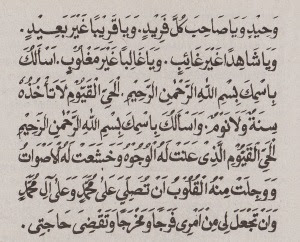 وَحِيدٍ وَيَا صَاحِبَ كُلِّ فَرِيدٍ. وَيَا قَرِيبًا غَيْرَ بَعِيدٍ.
وَيَا شَاهِدًا غَيْرَ غَائِبٍ. وَيَا غَالِبًا غَيْرَ مَغْلُوبٍ. اَسْأَلُكَ
بِاسْمِكَ بِسْمِ اللهِ الرَّحْمٰنِ الرَّحِيمِ. اَلْحَىِّ الْقَيُّومِ لَا تَأْخُذُهُ
سِنَةٌ وَلَا نَوْمٌ. وَاَسْأَلُكَ بِاسْمِكَ بِسْمِ اللهِ الرَّحْمٰنِ الرَّحِيمِ
اَلْحَىِّ الْقَيُّومِ الَّذِى عَنَتْ لَهُ الْوُجُوهُ وَخَشَعَتْ لَهُ الْاَصْوَاتُ
وَوَجِلَتْ مِنْهُ الْقُلُوبُ اَنْ تُصَلِّيَ عَلٰى مُحَمَّدٍ وَعَلٰى اٰلِ مُحَمَّدٍ
وَاَنْ تَجْعَلَ لِى مِنْ اَمْرِى فَرَجًا وَمَخْرَجًا وَتَقْضِىَ حَاجَتِى.